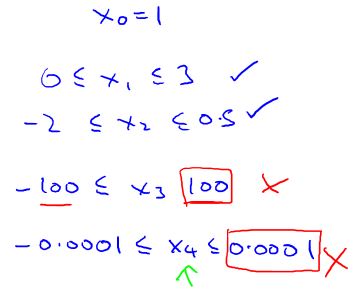 x₀ = 1
0 ≤ x₁ ≤ 3 ✓
-2 ≤ x₂ ≤ 0.5 ✓
-100 ≤ x₃ 100 ✗
-0.0001 ≤ x₄ ≤ 0.0001 ✗
↑